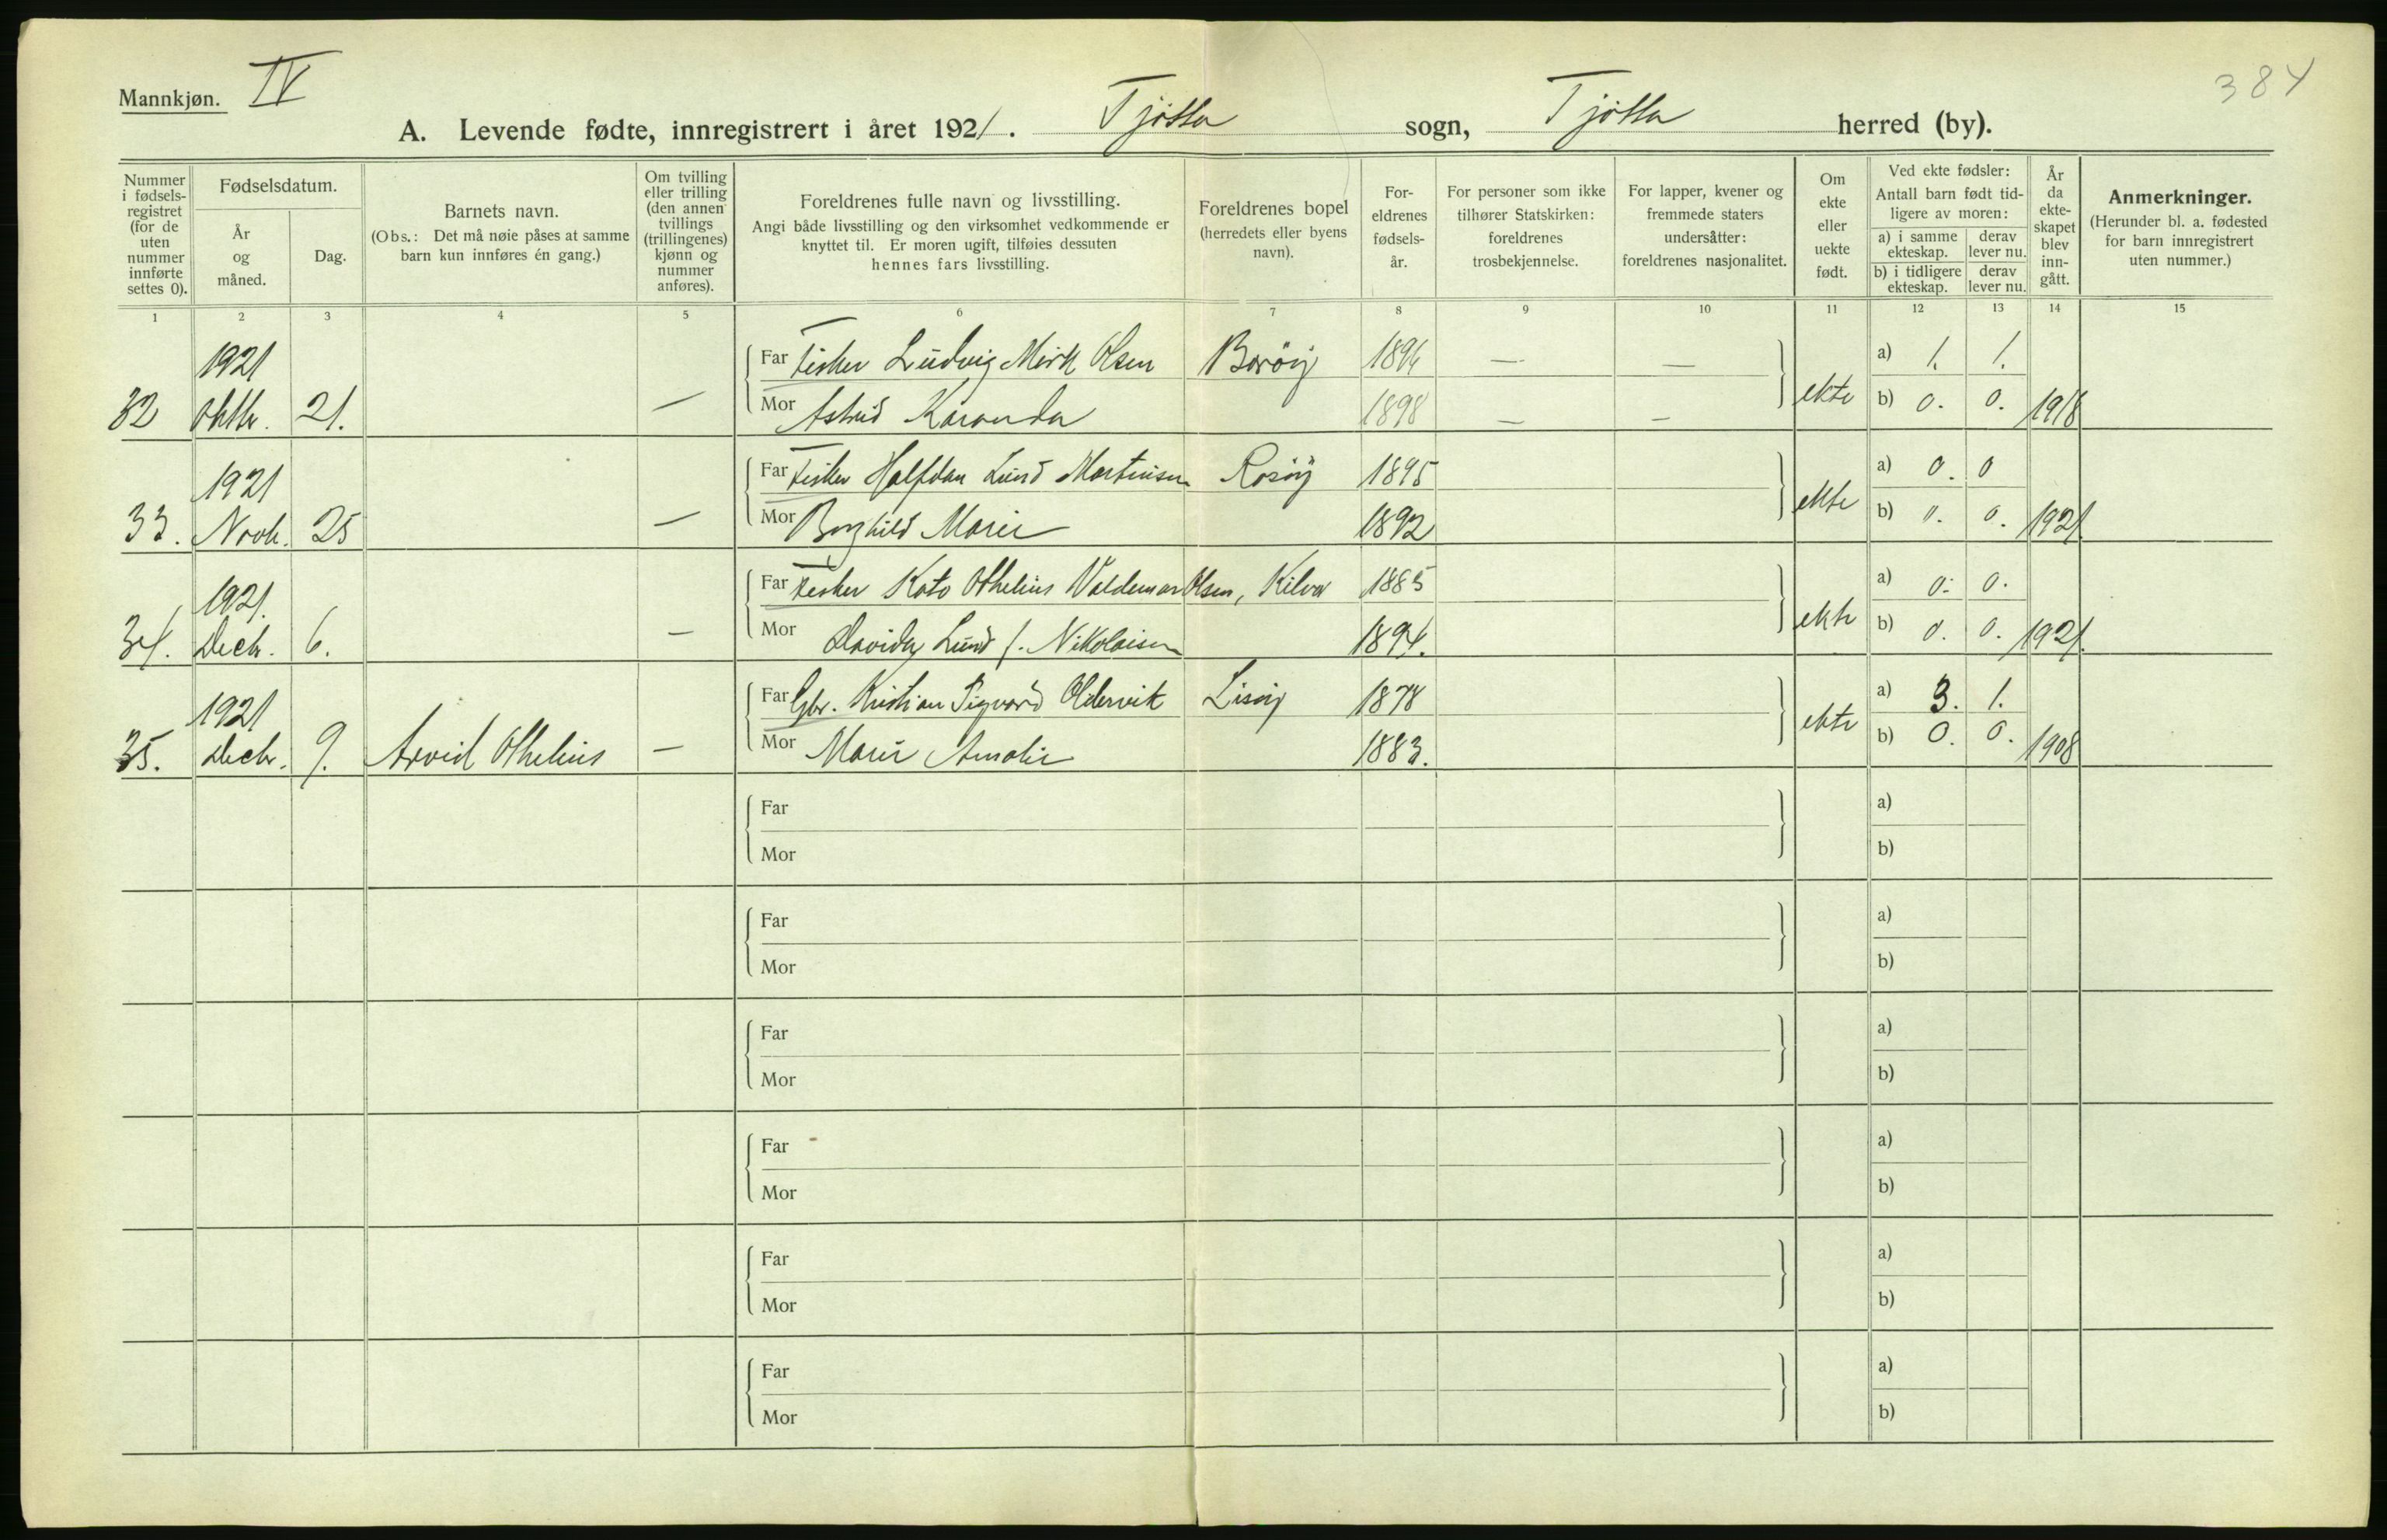 Mannkjøn. IV
384
A. Levende fødte, innregistrert i året 1921. Tjötta sogn, Tjötta herred (by).
Nummer i fødsels-registret (for de uten nummer innførte settes 0).
Fødselsdatum.
År og måned.
Dag.
Barnets navn.
(Obs.: Det må nøie påses at samme barn kun innføres én gang.)
Om tvilling eller trilling (den annen tvillings (trillingenes) kjønn og nummer anføres).
Foreldrenes fulle navn og livsstilling.
Angi både livsstilling og den virksomhet vedkommende er knyttet til. Er moren ugift, tilføies dessuten hennes fars livsstilling.
Foreldrenes bopel (herredets eller byens navn).
For-eldrenes fødsels-år.
For personer som ikke tilhører Statskirken: foreldrenes trosbekjennelse.
For lapper, kvener og fremmede staters undersåtter: foreldrenes nasjonalitet.
Om ekte eller uekte født.
Ved ekte fødsler:
Antall barn født tid-ligere av moren:
a) i samme ekteskap. derav lever nu.
b) i tidligere ekteskap. derav lever nu.
År da ekte-skapet blev inn-gått.
Anmerkninger.
(Herunder bl. a. fødested for barn innregistrert uten nummer.)
1 2 3 4 5 6 7 8 9 10 11 12 13 14 15
1921 Far Fisker Ludvig Mörk Olsen 1894 — — a) 1. 1.
32 Oktbr. 21. — Mor Astrid 1898 — — ekte b) 0. 0. 1918
1921 Far Fisker Halfdan Lund Martinsen Rosöy 1895 a) 0. 0
33. Novb. 25 — Mor Borghild Marie 1892 ekte b) 0. 0. 1921
1921. Far Fisker Kato Othelius Valdemar Olsen, Kilvær 1885 a) 0. 0.
34. Decb. 6. — Mor Davida Lund f. Nikolaisen 1894. ekte b) 0. 0. 1921.
1921 Far Gbr. Kristian Sigvard Oldervik 1878 a) 3. 1.
35. Decbr. 9. Arvid Othelius — Mor Marie Amalie 1883. ekte b) 0. 0. 1908
Far a)
Mor b)
Far a)
Mor b)
Far a)
Mor b)
Far a)
Mor b)
Far a)
Mor b)
Far a)
Mor b)